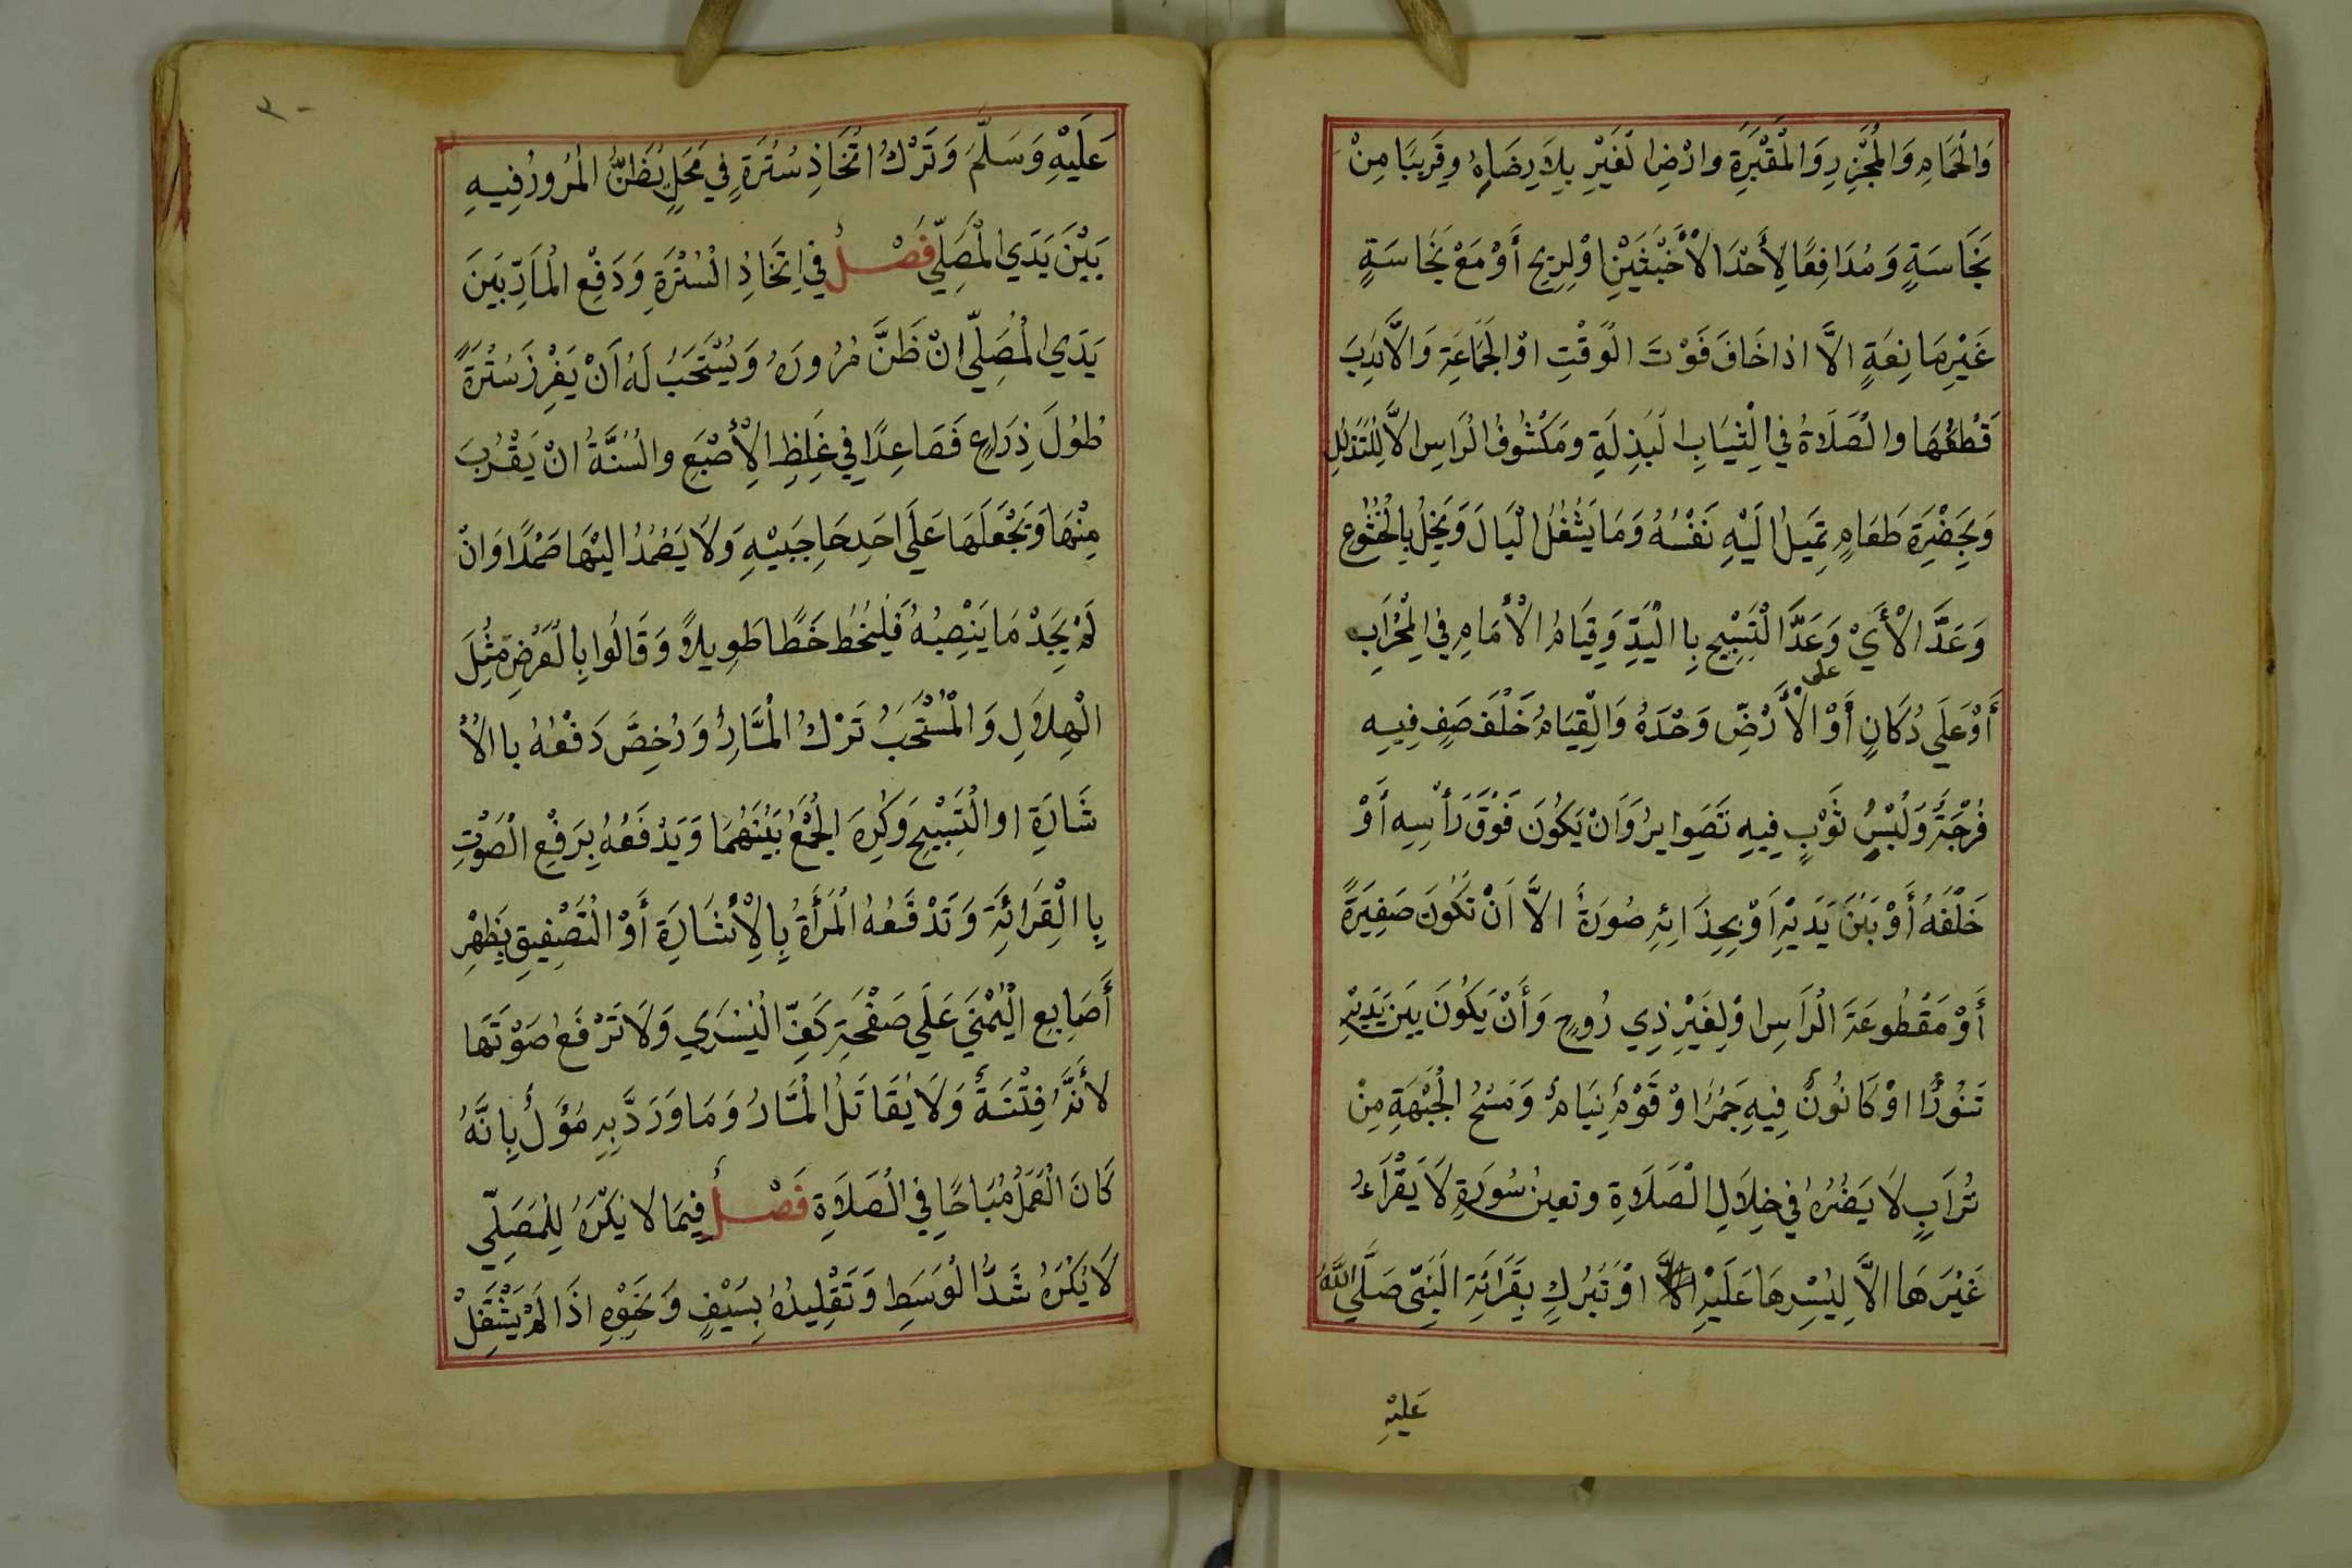 وَالْحَمَامِ وَالْمَجْزِرِ وَالْمَقْبَرَةِ وارْضِ الْغَيْرِ بِلَا رِضَاهُ وقَرِيبًا مِنْ
نَجَاسَةٍ وَمُدَافِعًا لِأَحَدِ الْأَخْبَثَيْنِ اوْ لِرِيحٍ أَوْ مَعَ نَجَاسَةٍ
غَيْرِ مَانِعَةٍ الَّا اذا خَافَ فَوْتَ الوَقْتِ اوْ الْجَمَاعَةِ وَالَّا نُدِبَ
قَطْعُهَا والصَّلَاةُ في الثِيَابِ البَذِلَةِ ومَكْشُوفُ الرَاسِ الَّا لِلتَذَلُلِ
وَبِحَضْرَةِ طَعَامٍ تَمِيلُ الَيْهِ نَفْسُهُ وَمَا يَشْغُلُ الْبَالَ وَيَخِلُ بِالْخُشُوعِ
وَعَدَّ الْأَيْ وَعَدَّ التَسْبِيحِ بِا الْيَدِّ وَقِيَامُ الْأَمَامِ فِي الْمِحْرَابِ
أَوْعَلَى دُكَانٍ أَوْ على الْأَرْضِّ وَحْدَهُ وَالْقِيَامُ خَلْفَ صَفٍ فِيهِ
فُرْجَةٌ وَلُبْسُ ثَوْبٍ فِيهِ تَصَوِايرُ وَأَنْ يَكُونَ فَوْقَ رَأْسِهِ أَوْ
خَلْفَهُ أَوْ بَيْنَ يَدَيْهِ اَوْ بِحِذَائِهِ صُورَةً الَّا اَنْ تَكُونَ صَغِيرَةً
أَوْ مَقْطُوعَةَ الْرَاسِ اوْ لِغَيْرِ ذِي رُوحٍ وَأَنْ يَكُونَ بَيْنَ يَدَيْهِ
تَنُورًا اوْ كَانُونً فِيهِ جَمْرًا اوْ قَوْمٌ نِيَامٌ وَمَسْحُ الْجَبْهَةِ مِنْ
تُرَابٍ لَا يَضُرُهُ فِي خِلَالِ الْصَلَاةِ وتعين سُورَةٍ لَا يَقْرَاءُ
غَيْرَهَا الَّا لِيُسْرِهَا عَلَيْهِ اوْ تَبَرُكٍ بِقَرَائَةِ الْنَبِيّ صَلَّى اللَّهُ
عَلَيْهِ
٣٠
عَلَيْهِ وَسَلَّمَ وَتَرْكُ اتْخَاذِ سُتْرَةٍ فِي مَحَلٍ يُظَنُّ الْمُرُورُ فِيهِ
بَيْنَ يَدَي الْمُصَلِّي فَصْلٌ في اتِخَاذِ السُتْرَةِ وَدَفْعِ الْمَارِّ بَيْنَ
يَدَي الْمُصَلِّي انْ ظَنَّ مُرُورَهُ وَيُسْتَحَبُ لَهُ اَنْ يَغْرِزَ سُتْرَةً
طُولَ ذِرَاعٍ فَصَاعِدًا فِي غِلَظِ الْأِصْبَعِ والسُنَّةُ انْ يَقْرُبَ
مِنْهَا وَيَجْعَلَهَا عَلَى احَدِ حَاجِبَيْهِ وَلَا يَصْمُدُ اليْهَا صَمْدًا وَانْ
لَمْ يَجِدْ مَا يَنْصِبُهُ فَلْيَخُطْ خَطًّا طَوِيلاً وَقَالُوا بِالْعَرْضِ مِثْلَ
الْهِلَالِ وَالْمُسْتَحَبُ تَرْكُ الْمَّارِ وَرُخِصَّ دَفْعُهُ با الْاُ
شَارَةِ او الْتَسْبِيحِ وَكُرِهَ الْجَمْعُ بَيْنَهُمَا وَيَدْفَعُهُ بِرَفْعِ الْصَوْتِ
بِا الْقِرَائَةِ وَتَدْفَعُهُ الْمَرْأَةُ بِالْاِشَارَةِ أَوْ الْتَصْفِيقِ بِظَهْرِ
أَصَابِعِ الْيُمْنَي عَلَي صَفْحَةِ كَفِّ الْيُسْرَي وَلَا تَرْفَعُ صَوْتَهَا
لأَنَّهُ فِتْنَةً وَلَا يُقَاتَلُ الْمَّارُ وَمَا وَرَدَّ بِهِ مُؤَلٌ بِانَّهُ
كَانَ الْعَمَلُ مُبَاحًا فِي الْصَلَاةِ فَصْلٌ فِيمَا لا يُكْرَهُ لِلْمُصَلِّي
لَا يُكْرَهُ شَدُّ الْوَسَطِ وَتَقْلِيدُهُ بِسَيْفٍ وَنَحْوِهِ اذَا لَمْ يَشْتَغِلْ